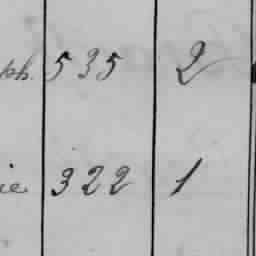 ph. 535 2
ie 322 1